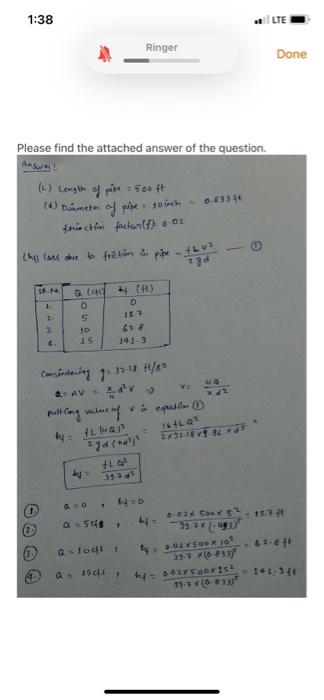 1:38
LTE
Ringer
Done
Please find the attached answer of the question.
Answer!
(L) Length of pipe = 500 ft
(d) Diameter of pipe = 10 inch = 0.833 ft
friction factor (f) = 0.02
(hf) loss due to friction in pipe = fLV² / 2gd — ①
SR.No Q (cfs) hf (ft)
1. 0 0
2. 5 15.7
3. 10 62.8
4. 15 141.3
Considering g = 32.18 ft/s²
Q = AV = π/4 d² V ⇒ V = 4Q / πd²
putting value of V in equation ①
hf = fL (4Q)² / 2gd (πd²)² = 16 fLQ² / 2×32.18×9.86×d⁵ =
hf = fLQ² / 39.7 d⁵
①. Q = 0 , hf = 0
②. Q = 5cfs , hf = 0.02 × 500 × 5² / 39.7 × (.833)⁵ = 15.7 ft
③. Q = 10cfs , hf = 0.02×500×10² / 39.7 ×(0.833)⁵ = 62.8 ft
④. Q = 15cfs , hf = 0.02×500×15² / 39.7 ×(0.833)⁵ = 141.3 ft